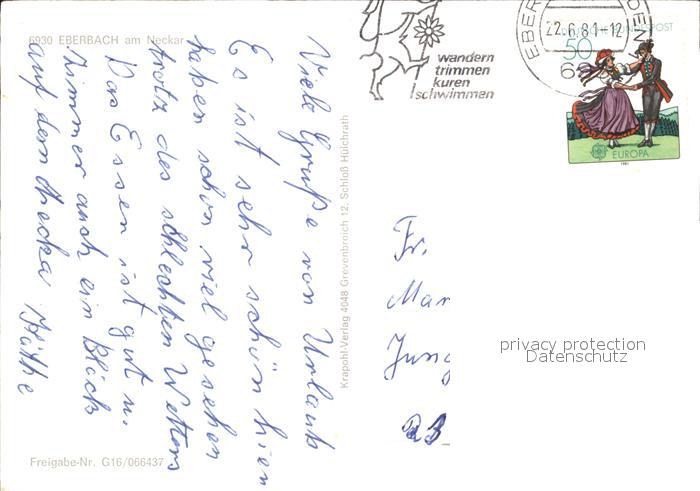 6930 EBERBACH am Neckar
Viele Grüße von Urlaub
Es ist sehr schön hier
haben schon viel gesehen
trotz des schlechten Wetters
Das Essen ist gut u.
Zimmer auch ein Blick
auf den Neckar Käthe
Freigabe-Nr. G16/066437
Krapohl-Verlag 4048 Grevenbroich 12, Schloß Hülchrath
wandern
trimmen
kuren
schwimmen
EBER
22.6.81-12
69
DEUTSCHE BUNDESPOST
50
EUROPA
1981
Fr.
Mar
Jung
privacy protection
Datenschutz